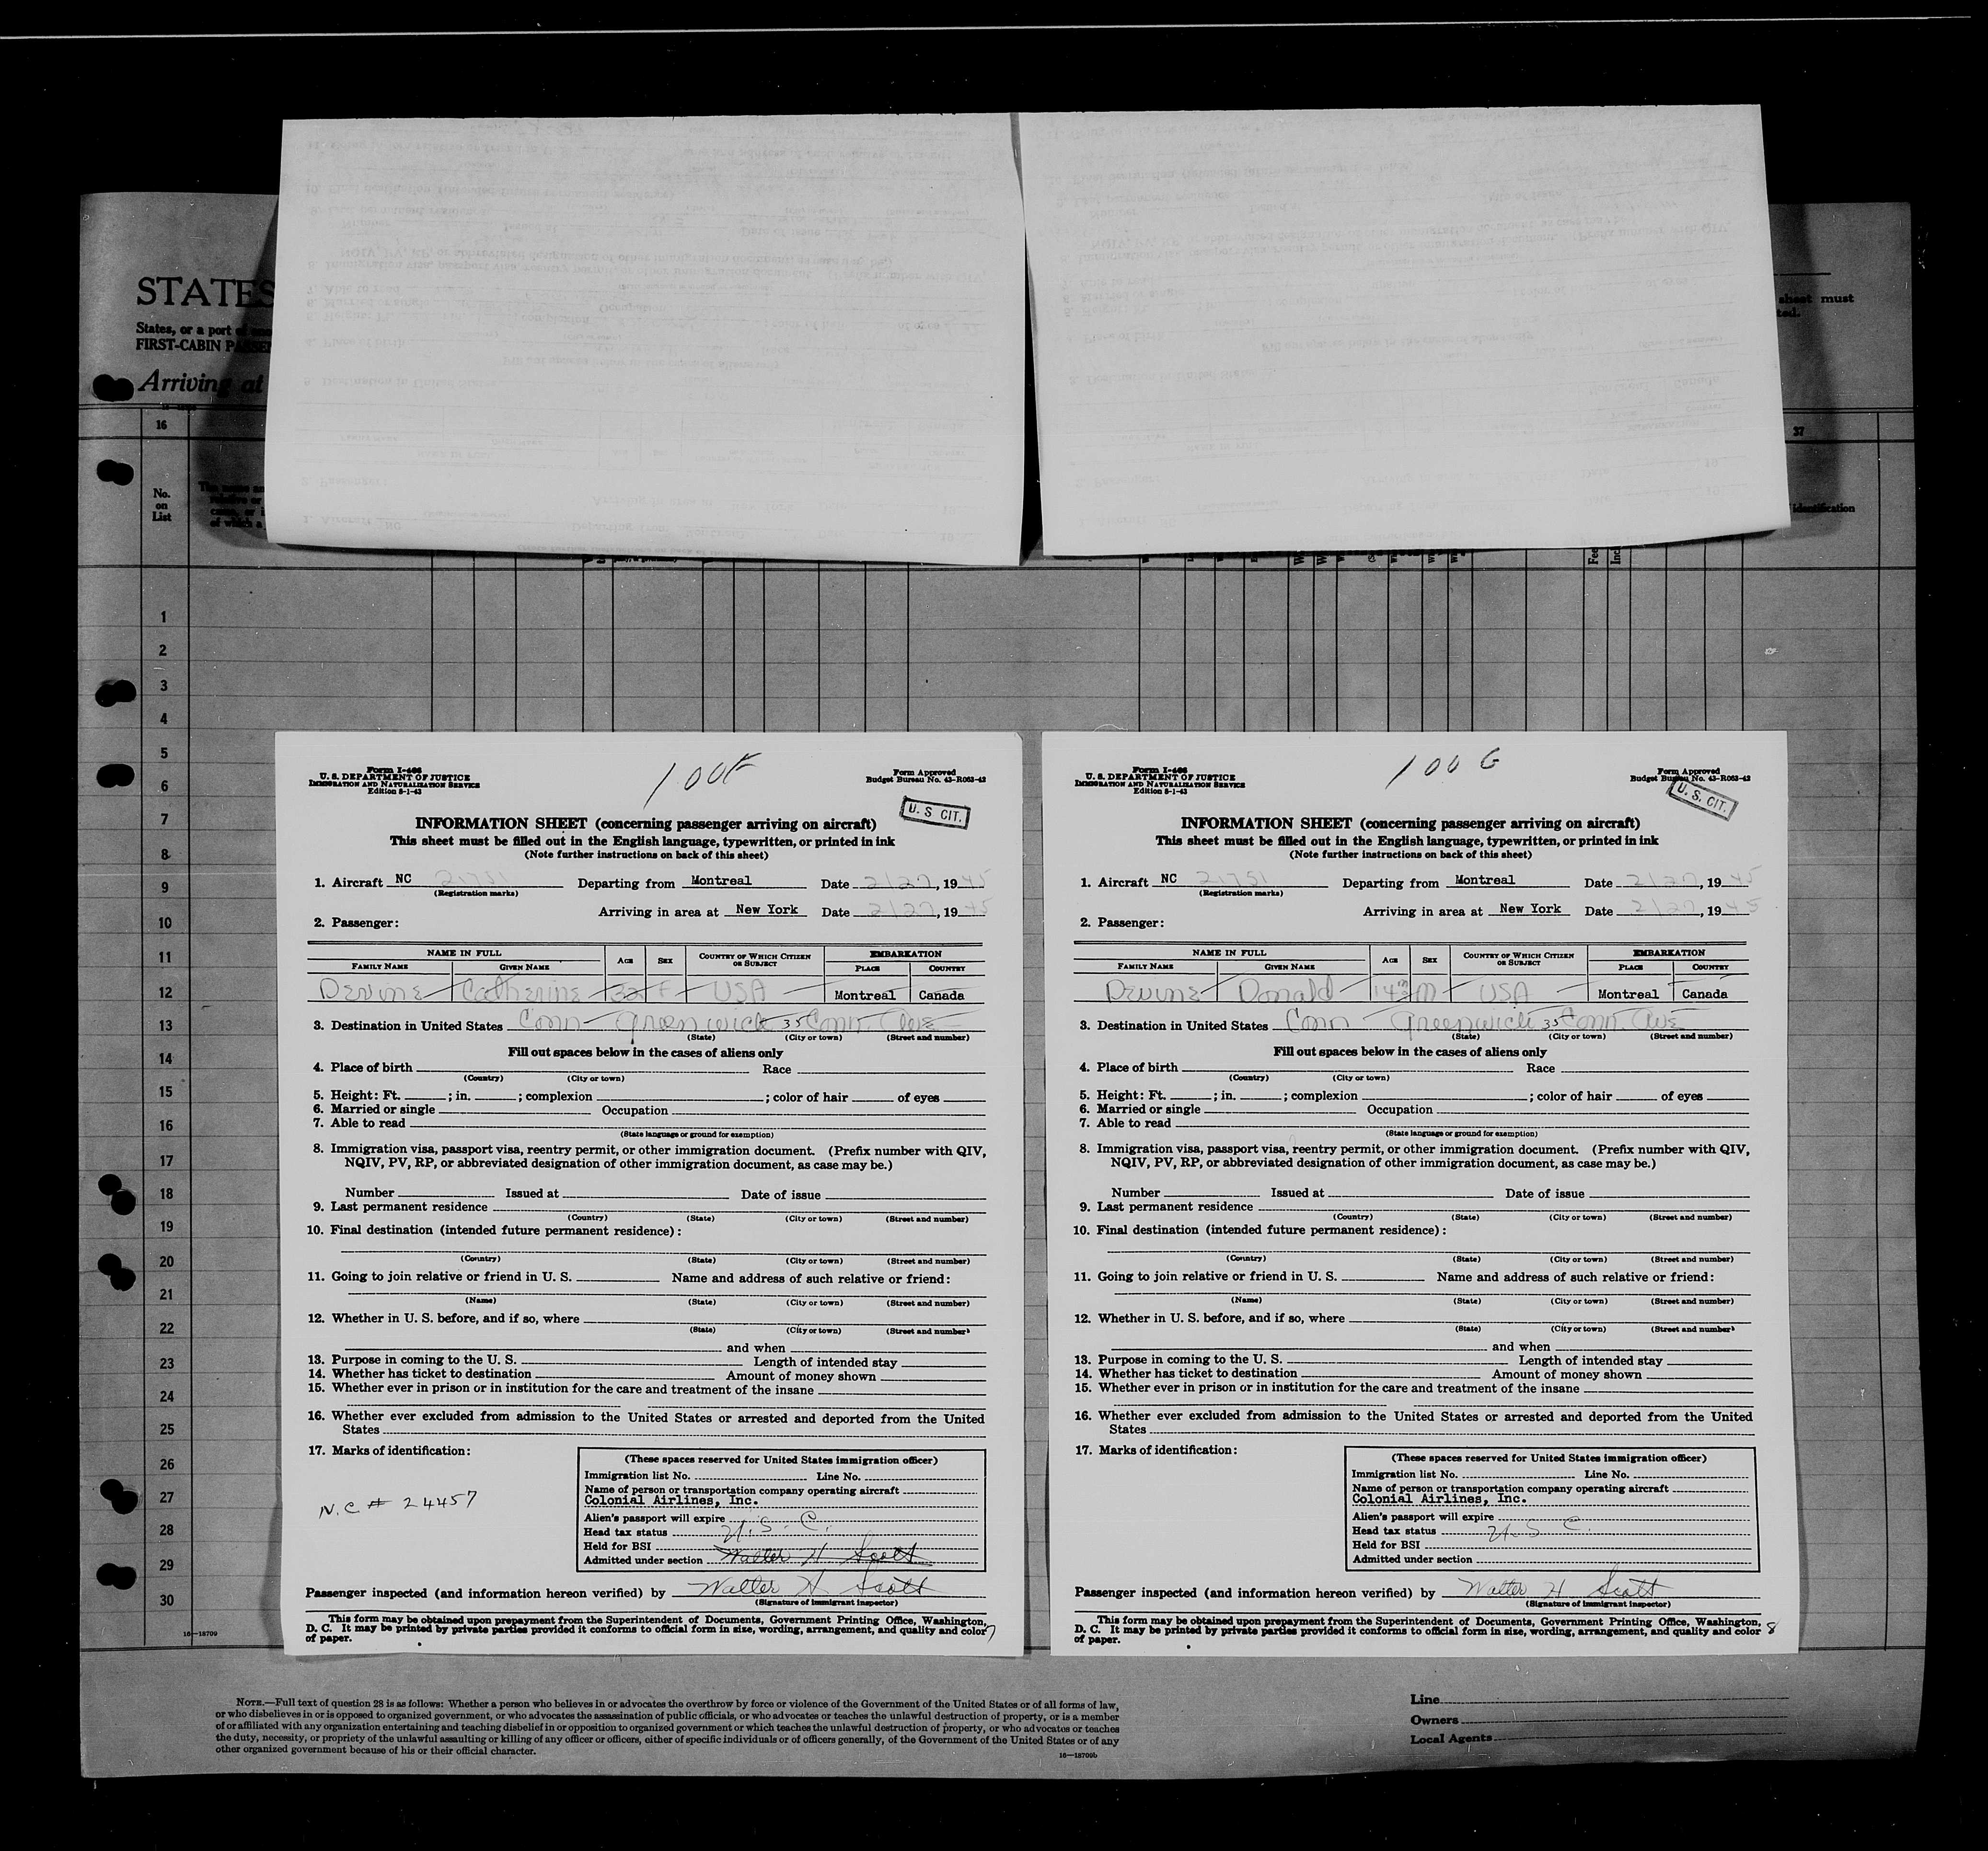 STATES
States, or a port of
FIRST-CABIN PASSEN
Arriving at
sheet must
ted.
16
37
No.
on
List
identification
1
2
3
4
5
6
7
8
9
10
11
12
13
14
15
16
17
18
19
20
21
22
23
24
25
26
27
28
29
30
16—18709
Form I-466
U. S. DEPARTMENT OF JUSTICE
IMMIGRATION AND NATURALIZATION SERVICE
Edition 8-1-43
100F
Form Approved
Budget Bureau No. 43-R063-42
U. S CIT.
INFORMATION SHEET (concerning passenger arriving on aircraft)
This sheet must be filled out in the English language, typewritten, or printed in ink
(Note further instructions on back of this sheet)
1. Aircraft NC 21751 Departing from Montreal Date 2/27, 1945
(Registration marks)
Arriving in area at New York Date 2/27, 1945
2. Passenger:
NAME IN FULL AGE SEX COUNTRY OF WHICH CITIZEN OR SUBJECT EMBARKATION
FAMILY NAME GIVEN NAME PLACE COUNTRY
Devine Catherine 32 F USA Montreal Canada
3. Destination in United States Conn Greenwich 35 Conn. Ave
(State) (City or town) (Street and number)
Fill out spaces below in the cases of aliens only
4. Place of birth Race
(Country) (City or town)
5. Height: Ft. ; in. ; complexion ; color of hair of eyes
6. Married or single Occupation
7. Able to read
(State language or ground for exemption)
8. Immigration visa, passport visa, reentry permit, or other immigration document. (Prefix number with QIV,
NQIV, PV, RP, or abbreviated designation of other immigration document, as case may be.)
Number Issued at Date of issue
9. Last permanent residence
(Country) (State) (City or town) (Street and number)
10. Final destination (intended future permanent residence):
(Country) (State) (City or town) (Street and number)
11. Going to join relative or friend in U. S. Name and address of such relative or friend:
(Name) (State) (City or town) (Street and number)
12. Whether in U. S. before, and if so, where
(State) (City or town) (Street and number)
and when
13. Purpose in coming to the U. S. Length of intended stay
14. Whether has ticket to destination Amount of money shown
15. Whether ever in prison or in institution for the care and treatment of the insane
16. Whether ever excluded from admission to the United States or arrested and deported from the United
States
17. Marks of identification:
N.C # 24457
(These spaces reserved for United States immigration officer)
Immigration list No. Line No.
Name of person or transportation company operating aircraft
Colonial Airlines, Inc.
Alien's passport will expire
Head tax status U.S. C.
Held for BSI
Admitted under section Walter H Scott
Passenger inspected (and information hereon verified) by Walter H Scott
(Signature of immigrant inspector)
This form may be obtained upon prepayment from the Superintendent of Documents, Government Printing Office, Washington,
D. C. It may be printed by private parties provided it conforms to official form in size, wording, arrangement, and quality and color 7
of paper.
Form I-466
U. S. DEPARTMENT OF JUSTICE
IMMIGRATION AND NATURALIZATION SERVICE
Edition 8-1-43
100 G
Form Approved
Budget Bureau No. 43-R063-42
U. S. CIT.
INFORMATION SHEET (concerning passenger arriving on aircraft)
This sheet must be filled out in the English language, typewritten, or printed in ink
(Note further instructions on back of this sheet)
1. Aircraft NC 21751 Departing from Montreal Date 2/27, 1945
(Registration marks)
Arriving in area at New York Date 2/27, 1945
2. Passenger:
NAME IN FULL AGE SEX COUNTRY OF WHICH CITIZEN OR SUBJECT EMBARKATION
FAMILY NAME GIVEN NAME PLACE COUNTRY
Devine Donald 14 M USA Montreal Canada
3. Destination in United States Conn Greenwich 35 Conn. Ave
(State) (City or town) (Street and number)
Fill out spaces below in the cases of aliens only
4. Place of birth Race
(Country) (City or town)
5. Height: Ft. ; in. ; complexion ; color of hair of eyes
6. Married or single Occupation
7. Able to read
(State language or ground for exemption)
8. Immigration visa, passport visa, reentry permit, or other immigration document. (Prefix number with QIV,
NQIV, PV, RP, or abbreviated designation of other immigration document, as case may be.)
Number Issued at Date of issue
9. Last permanent residence
(Country) (State) (City or town) (Street and number)
10. Final destination (intended future permanent residence):
(Country) (State) (City or town) (Street and number)
11. Going to join relative or friend in U. S. Name and address of such relative or friend:
(Name) (State) (City or town) (Street and number)
12. Whether in U. S. before, and if so, where
(State) (City or town) (Street and number)
and when
13. Purpose in coming to the U. S. Length of intended stay
14. Whether has ticket to destination Amount of money shown
15. Whether ever in prison or in institution for the care and treatment of the insane
16. Whether ever excluded from admission to the United States or arrested and deported from the United
States
17. Marks of identification:
(These spaces reserved for United States immigration officer)
Immigration list No. Line No.
Name of person or transportation company operating aircraft
Colonial Airlines, Inc.
Alien's passport will expire
Head tax status U.S C.
Held for BSI
Admitted under section
Passenger inspected (and information hereon verified) by Walter H Scott
(Signature of immigrant inspector)
This form may be obtained upon prepayment from the Superintendent of Documents, Government Printing Office, Washington,
D. C. It may be printed by private parties provided it conforms to official form in size, wording, arrangement, and quality and color 8
of paper.
NOTE.—Full text of question 28 is as follows: Whether a person who believes in or advocates the overthrow by force or violence of the Government of the United States or of all forms of law,
or who disbelieves in or is opposed to organized government, or who advocates the assassination of public officials, or who advocates or teaches the unlawful destruction of property, or is a member
of or affiliated with any organization entertaining and teaching disbelief in or opposition to organized government or which teaches the unlawful destruction of property, or who advocates or teaches
the duty, necessity, or propriety of the unlawful assaulting or killing of any officer or officers, either of specific individuals or of officers generally, of the Government of the United States or of any
other organized government because of his or their official character.
16—18709b
Line
Owners
Local Agents